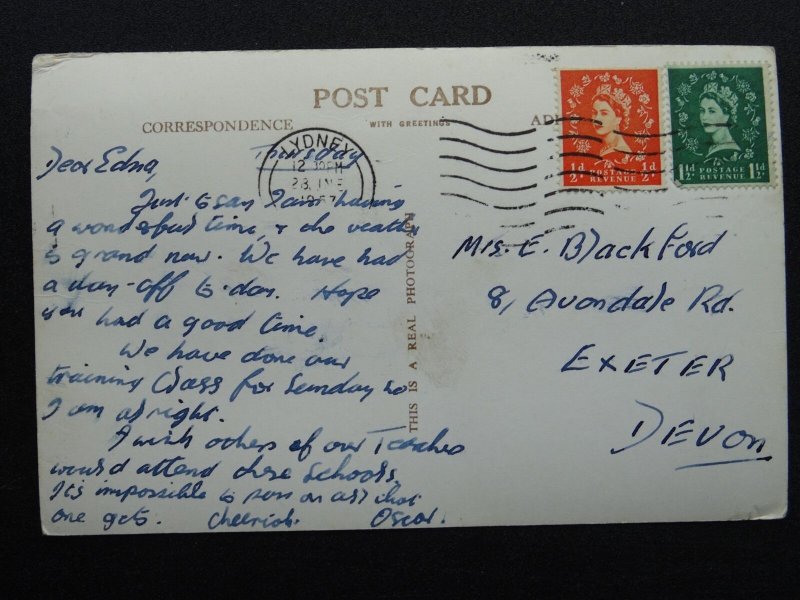 POST CARD
WITH GREETINGS
CORRESPONDENCE
AD
LYDNEY
12
1957
1/2d 1/2d
POSTAGE
REVENUE
1 1/2d 1 1/2d
POSTAGE
REVENUE
THIS IS A REAL PHOTOGRAPH
Thursday
Dear Edna,
Just to say I am having
a wonderful time, & the weather
is grand now. We have had
a day-off to-day. Hope
you had a good time.
We have done our
training Class for Sunday so
I am alright.
I wish others of our Teachers
would attend these Schools.
It's impossible to pass on all that
one gets. Cheerioh. Oscar.
Mrs. E. Blackford
8, Avondale Rd.
EXETER
DEVON